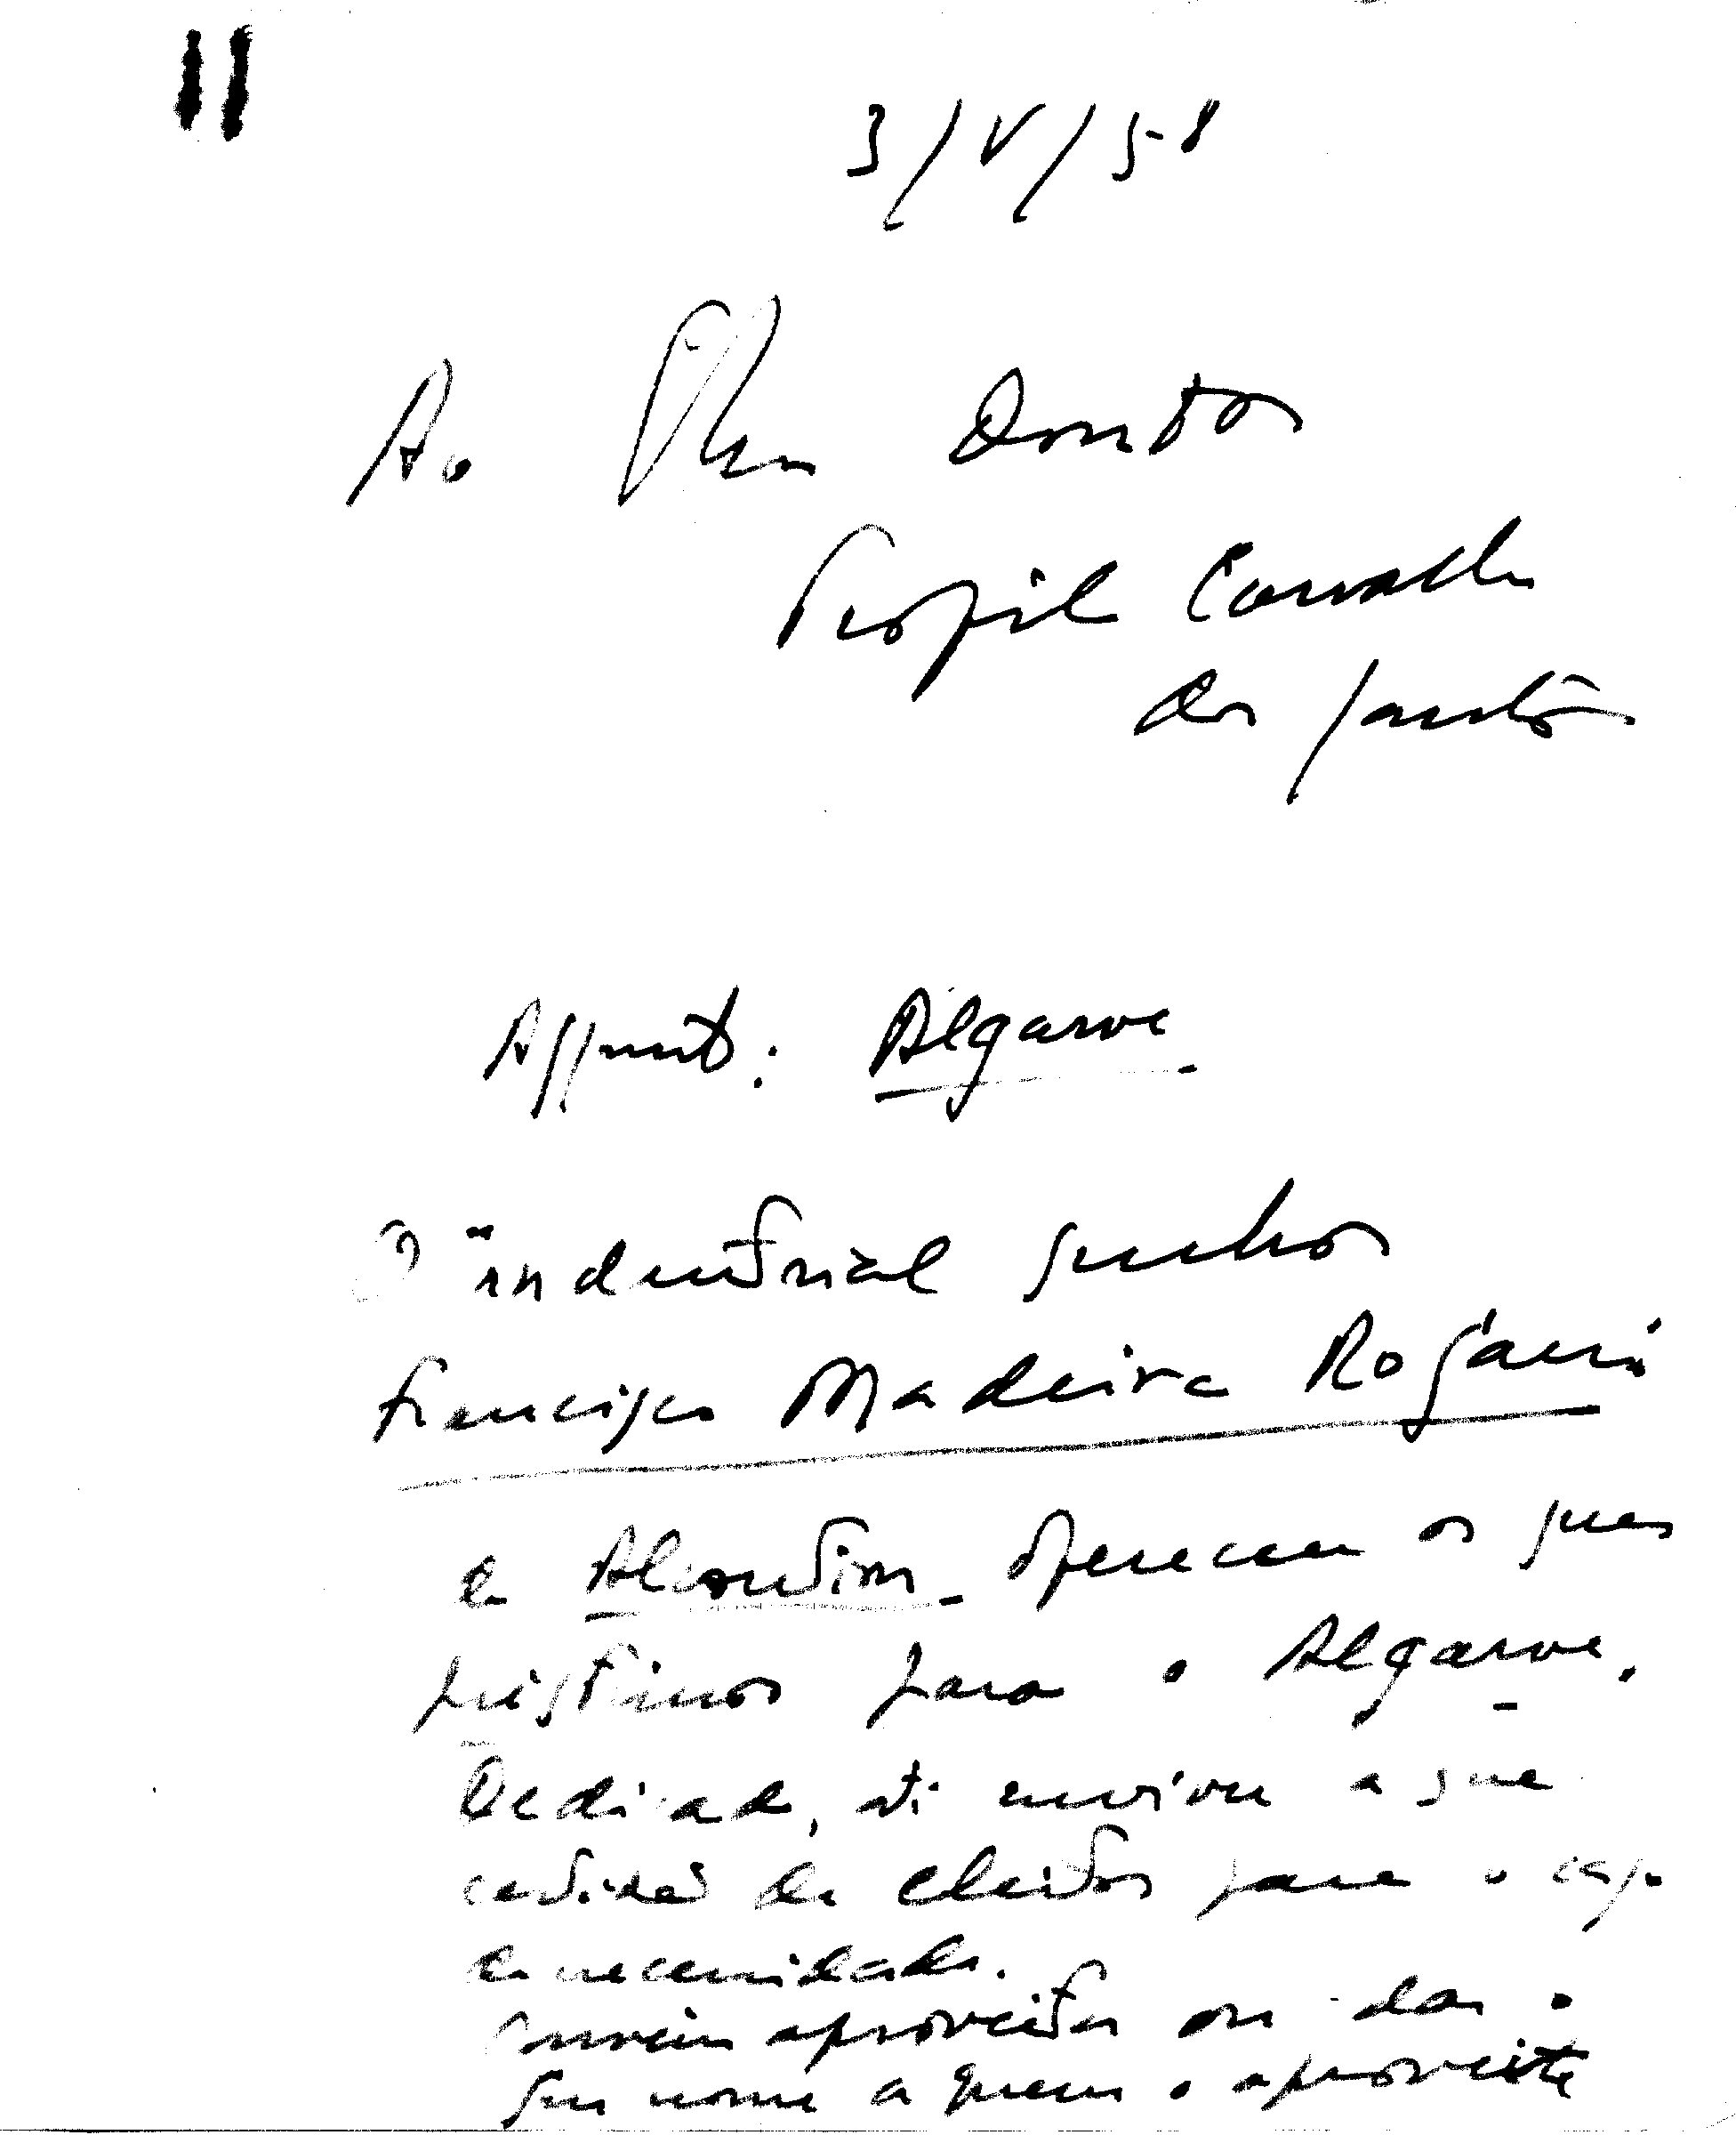 11
3/V/58
Ao Ilm. Doutor
Teófilo Carvalho
dos Santos
Assunto: Algarve
O industrial senhor
Francisco Madeira Rogério
de Alcoutim ofereceu os seus
préstimos para o Algarve.
Dedicado, até enviou a sua
certidão de eleitor para o caso
de necessidade.
Convém aproveitar ou dar o
seu nome a quem o aproveite